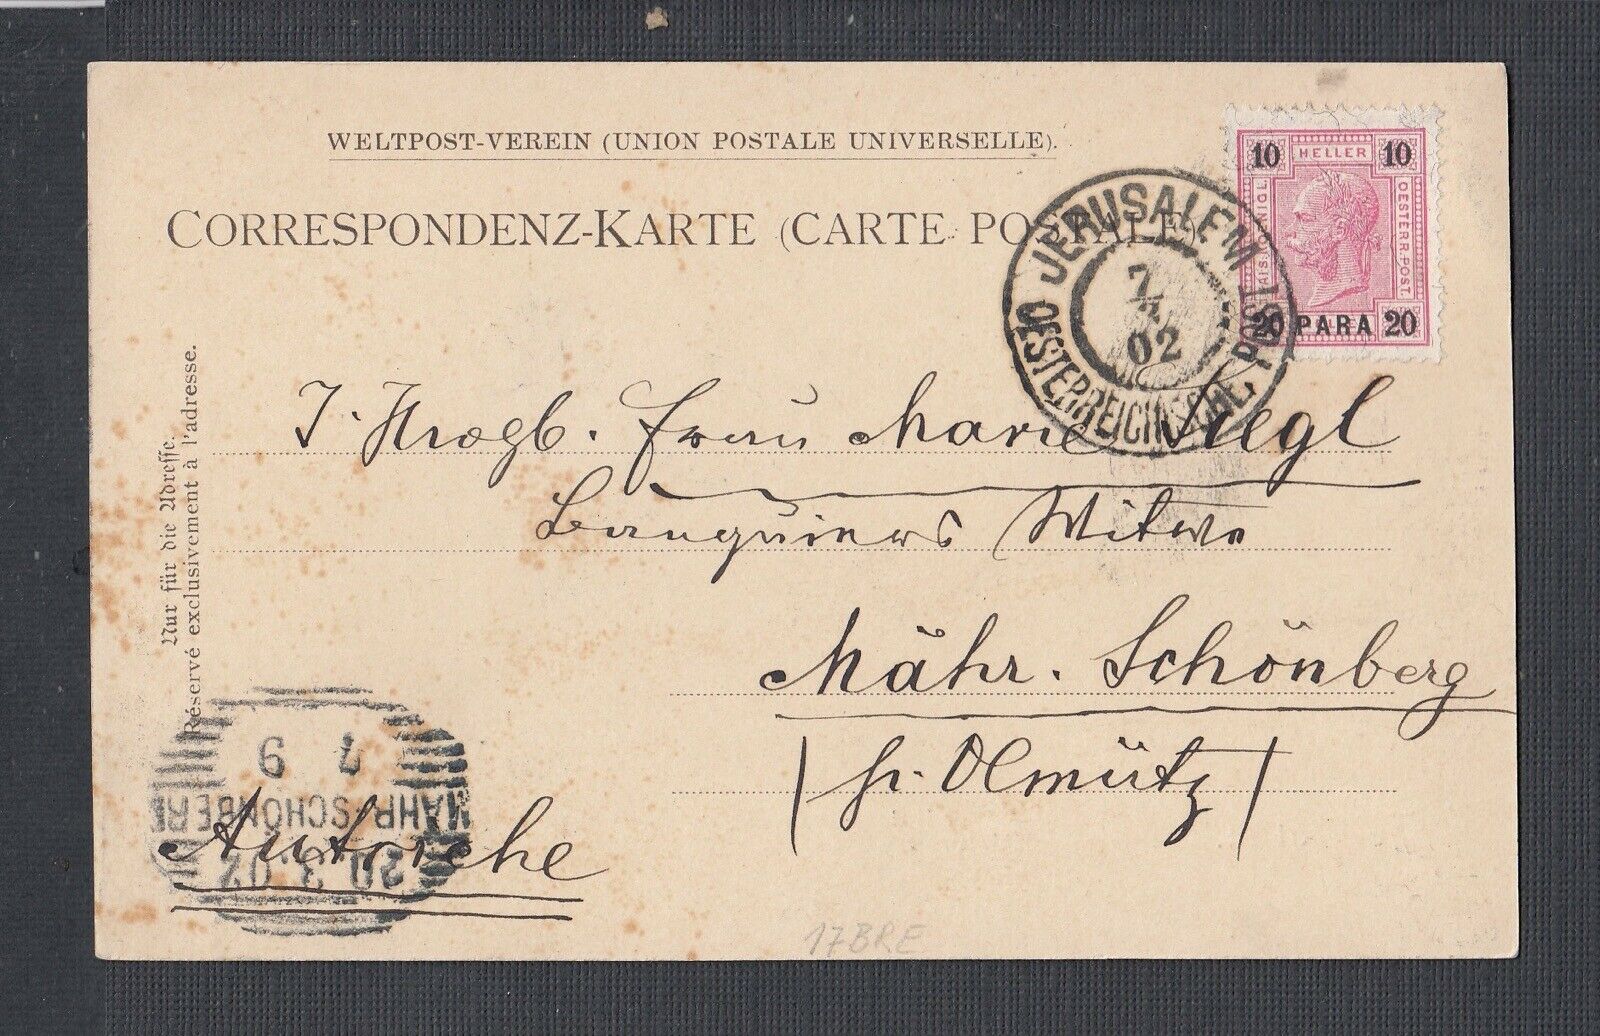 WELTPOST-VEREIN (UNION POSTALE UNIVERSELLE).
CORRESPONDENZ-KARTE (CARTE POSTALE)
10 HELLER 10
KAIS. KÖNIGL.
OESTERR. POST.
20 PARA 20
JERUSALEM
7
02
OESTERREICHISCHE POST
Nur für die Adresse.
Réservé exclusivement à l'adresse.
Frau Marie Siegl
Banquiers Witwe
Mähr. Schönberg
Olmütz
Autriche
7 9
MÄHR.-SCHÖNBERG
20.3.02
17BRE